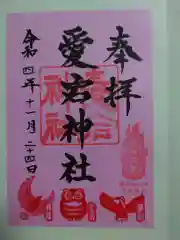 奉拝
愛宕神社
令和四年十一月二十四日